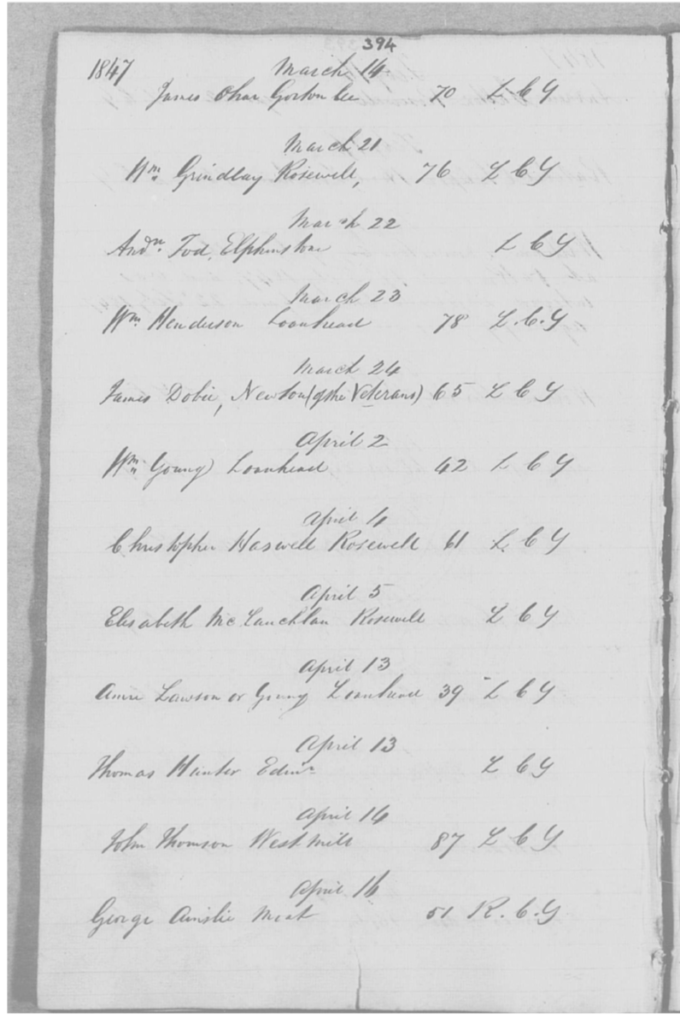 394
1847 March 14
James Gorton Lee 70 L C Y
March 21
Wm Grindlay Rosewell, 76 L C Y
March 22
Andw Tod Elphinstone L C Y
March 23
Wm Henderson Loanhead 78 L. C. Y
March 24
James Dobie, Newton (of the Veterans) 65 L C Y
April 2
Wm Young Loanhead 42 L C Y
April 4
Christopher Haswell Rosewell 61 L. C Y
April 5
Elisabeth McLauchlan Rosewell L C Y
April 13
Anne Lawson or Young Loanhead 39 L C Y
April 13
Thomas Hunter Edinr L C Y
April 14
John Thomson West Mill 87 L C Y
April 16
George Ainslie 51 R. C. Y